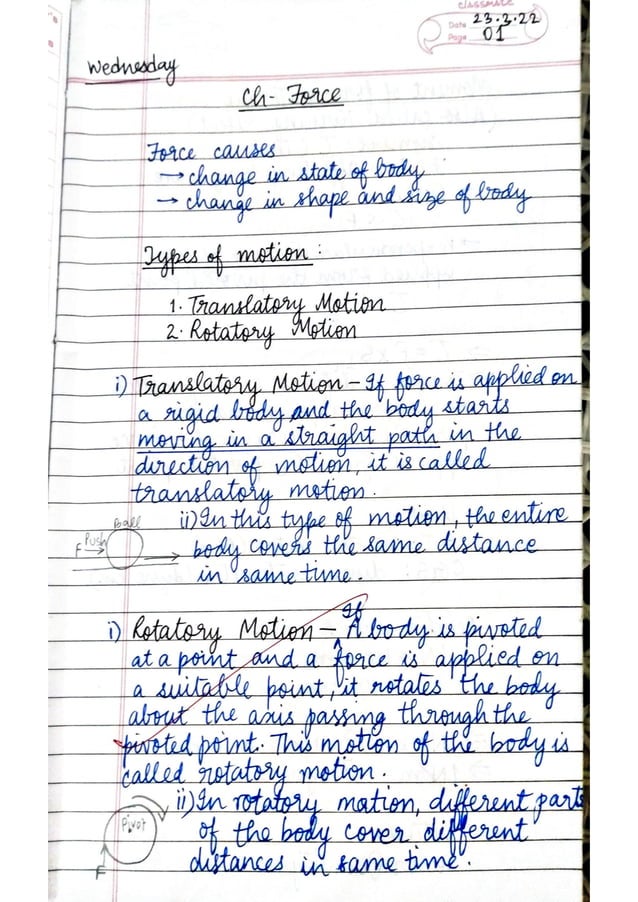 classmate
Date 23.3.22
Page 01
Wednesday
Ch- Force
Force causes
→ change in state of body
→ change in shape and size of body
Types of motion :
1. Translatory Motion
2. Rotatory Motion
i) Translatory Motion – If force is applied on
a rigid body and the body starts
moving in a straight path in the
direction of motion, it is called
translatory motion.
Ball
Push
F
ii) In this type of motion, the entire
body covers the same distance
in same time.
If
i) Rotatory Motion – A body is pivoted
at a point and a force is applied on
a suitable point, it rotates the body
about the axis passing through the
pivoted point. This motion of the body is
called rotatory motion.
Pivot
F
ii) In rotatory motion, different parts
of the body cover different
distances in same time.